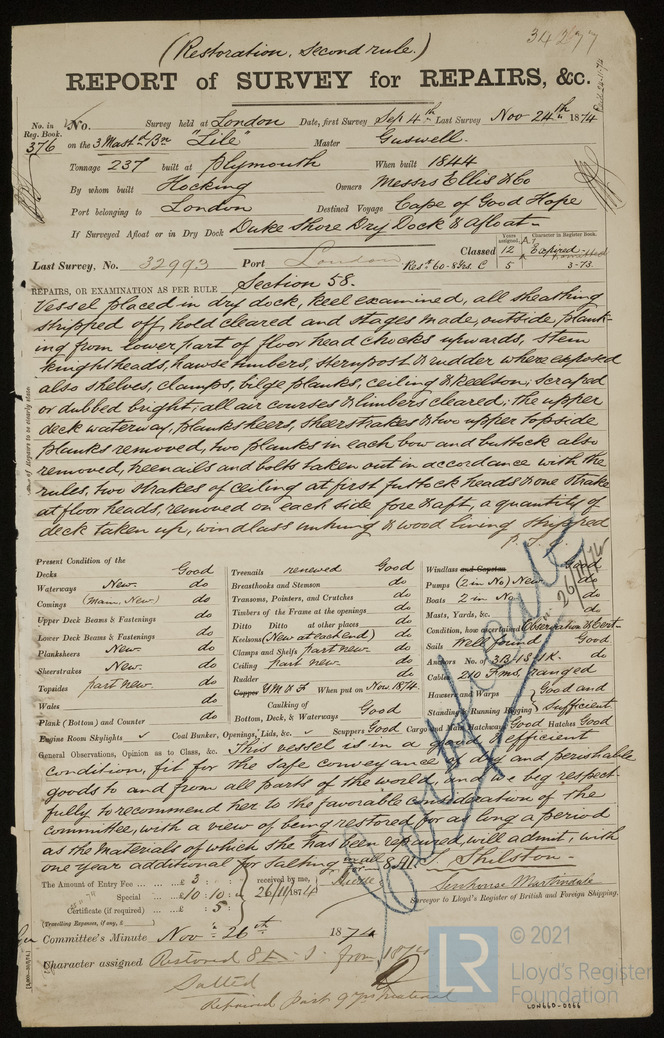 34277
(Restoration, Second rule.)
REPORT of SURVEY for REPAIRS, &c.
No. in Reg. Book. 376
No. Survey held at London Date, first Survey Sep 4th Last Survey Nov 24th 1874
on the 3 Mastd Bn "Lile" Master Guswell.
Tonnage 237 built at Plymouth When built 1844
By whom built Hocking Owners Messrs Ellis & Co
Port belonging to London Destined Voyage Cape of Good Hope
If Surveyed Afloat or in Dry Dock Duke Shore Dry Dock & Afloat
Years assigned. Character in Register Book.
Classed 12 A1 Expired
5 3-73.
Last Survey, No. 32993 Port London Resd 60-8Yrs. C
REPAIRS, OR EXAMINATION AS PER RULE Section 58.
Vessel placed in dry dock, keel examined, all sheathing
stripped off, hold cleared and stages made, outside plank-
ing from lower part of floor head chocks upwards, stem
knightheads, hawse timbers, sternpost & rudder where exposed
also shelves, clamps, bilge planks, ceiling & keelson, scraped
or dubbed bright, all air courses & limbers cleared; the upper
deck waterway, planksheers, sheerstrakes & two upper topside
planks removed, two planks in each bow and buttock also
removed, treenails and bolts taken out in accordance with the
rules, two strakes of ceiling at first futtock heads & one strake
at floor heads, removed on each side fore & aft, a quantity of
deck taken up, windlass unhung & wood lining stripped
P.T.O.
Present Condition of the
Decks Good
Waterways New. do
Comings (Main, New.) do
Upper Deck Beams & Fastenings do
Lower Deck Beams & Fastenings do
Planksheers New. do
Sheerstrakes New. do
Topsides part new. do
Wales do
Plank (Bottom) and Counter do
Engine Room Skylights
Treenails renewed Good
Breasthooks and Stemson do
Transoms, Pointers, and Crutches do
Timbers of the Frame at the openings do
Ditto Ditto at other places do
Keelsons (New at each end) do
Clamps and Shelfs part new. do
Ceiling part new. do
Rudder do
Copper YM & F When put on Nov. 1874.
Caulking of Bottom, Deck, & Waterways Good
Coal Bunker, Openings, Lids, &c. Scuppers Good Cargo and Main Hatchways Good Hatches Good
Windlass and Capstan Good
Pumps (2 in No) New. do
Boats 2 in No do
Masts, Yards, &c. do
Condition, how ascertained Observation & Cert.
Sails Well found Good
Anchors No. of 3B. 1S. 1K. do
Cables 210 Fms. ranged
Hawsers and Warps Good and
Standing & Running Rigging Sufficient
General Observations, Opinion as to Class, &c. This vessel is in a good & efficient
condition, fit for the safe conveyance of dry and perishable
goods to and from all parts of the world, and we beg respect-
fully to recommend her to the favorable consideration of the
committee, with a view of being restored for as long a period
as the Materials of which she has been repaired, will admit, with
one year additional for Salting in all 8.A1.
The Amount of Entry Fee ... £ 3 : :
Special ... £10 : 10 :
Certificate (if required) ... £ : 5 :
(Travelling Expenses, if any, £ )
received by me, 26/11/1874
T. Shilston
Senhouse Martindale
Surveyor to Lloyd's Register of British and Foreign Shipping.
Committee's Minute Nov 26th 1874
Character assigned Restored 8 A.1 from 1874
Salted
Repaired part 9 yrs material
26/11/74
LR © 2021
Lloyd's Register
Foundation
LON660-0066